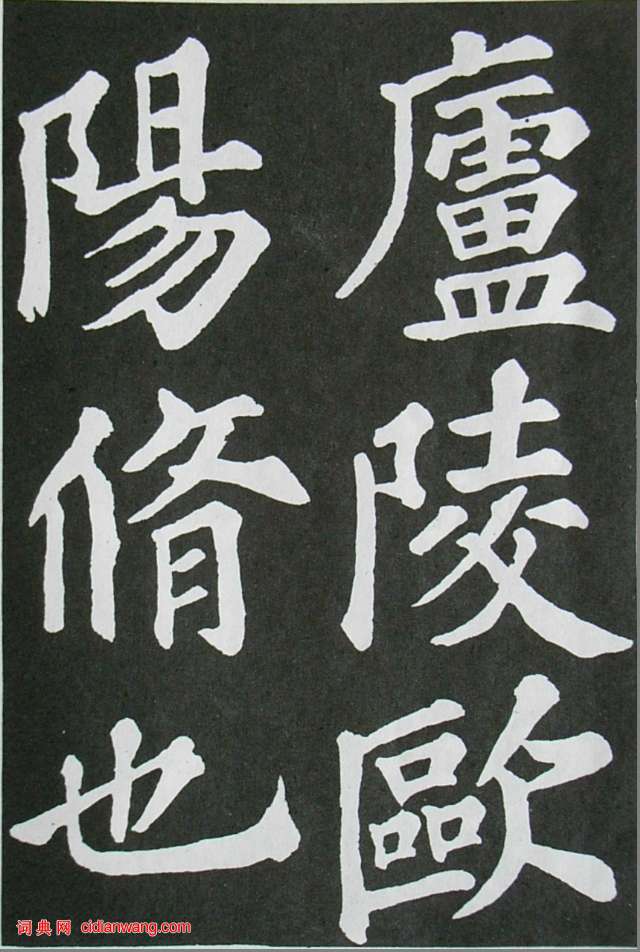 廬陵歐
陽脩也
词典网 cidianwang.com